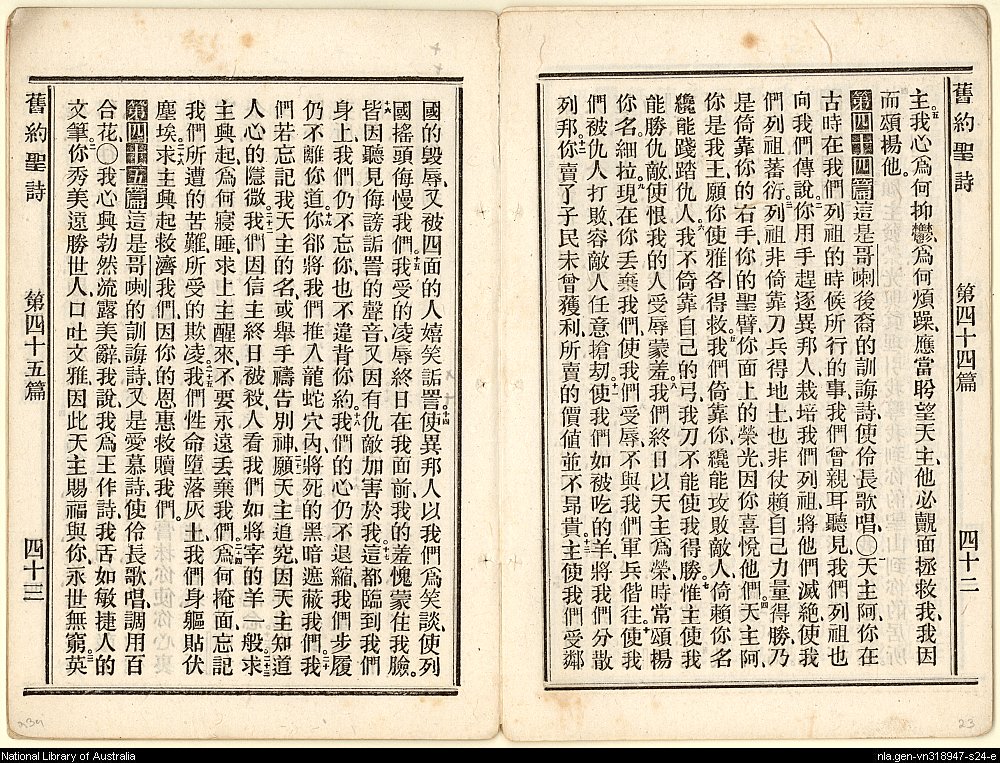 舊約聖詩　第四十四篇　四十二
主、五我心爲何抑鬱、爲何煩躁、應當盼望天主、他必覿面拯救我、我因
而頌揚他。
第四十四篇 這是哥喇後裔的訓誨詩、使伶長歌唱、〇天主阿、你在
古時在我們列祖的時候所行的事、我們曾親耳聽見、我們列祖也
向我們傳說、二你用手趕逐異邦人、栽培我們列祖、將他們滅絕、使我
們列祖蕃衍、三列祖非倚靠刀兵得地土、也非仗賴自己力量得勝、乃
是倚靠你的右手、你的聖臂、你面上的榮光、因你喜悅他們、四天主阿、
你是我王、願你使雅各得救、五我們倚靠你、纔能攻敗敵人、倚賴你名
纔能踐踏仇人、六我不倚靠自己的弓、我刀不能使我得勝、七惟主使我
能勝仇敵、使恨我的人受辱蒙羞、八我們終日以天主爲榮、時常頌揚
你名、細拉、九現在你丟棄我們、使我們受辱、不與我們軍兵偕往、十使我
們被仇人打敗、容敵人任意搶刼、十一使我們如被吃的羊、將我們分散
列邦、十二你賣了子民、未曾獲利、所賣的價值並不昻貴、十三主使我們受鄰
舊約聖詩　第四十五篇　四十三
國的毀辱、又被四面的人嬉笑詬詈、十四使異邦人以我們爲笑談、使列
國搖頭侮慢我們、十五我受的凌辱終日在我面前、我的羞愧蒙住我臉、
十六皆因聽見侮謗詬詈的聲音、又因有仇敵加害於我、十七這都臨到我們
身上、我們仍不忘你、也不違背你約、十八我們的心仍不退縮、我們步履
仍不離你道、十九你卻將我們推入龍蛇穴內、將死的黑暗遮蔽我們、二十我
們若忘記我天主的名、或舉手禱告別神、二十一願天主追究、因天主知道
人心的隱微、二十二我們因信主終日被殺、人看我們如將宰的羊一般、二十三求
主興起、爲何寢睡、求上主醒來、不要永遠丟棄我們、二十四爲何掩面、忘記
我們所遭的苦難、所受的欺凌、二十五我們性命墮落灰土、我們身軀貼伏
塵埃、二十六求主興起救濟我們、因你的恩惠救贖我們。
第四十五篇 這是哥喇的訓誨詩、又是愛慕詩、使伶長歌唱、調用百
合花、〇我心興勃然、流露美辭、我說我爲王作詩、我舌如敏捷人的
文筆、二你秀美遠勝世人、口吐文雅、因此天主賜福與你、永世無窮、三英
National Library of Australia
nla.gen-vn318947-s24-e
23